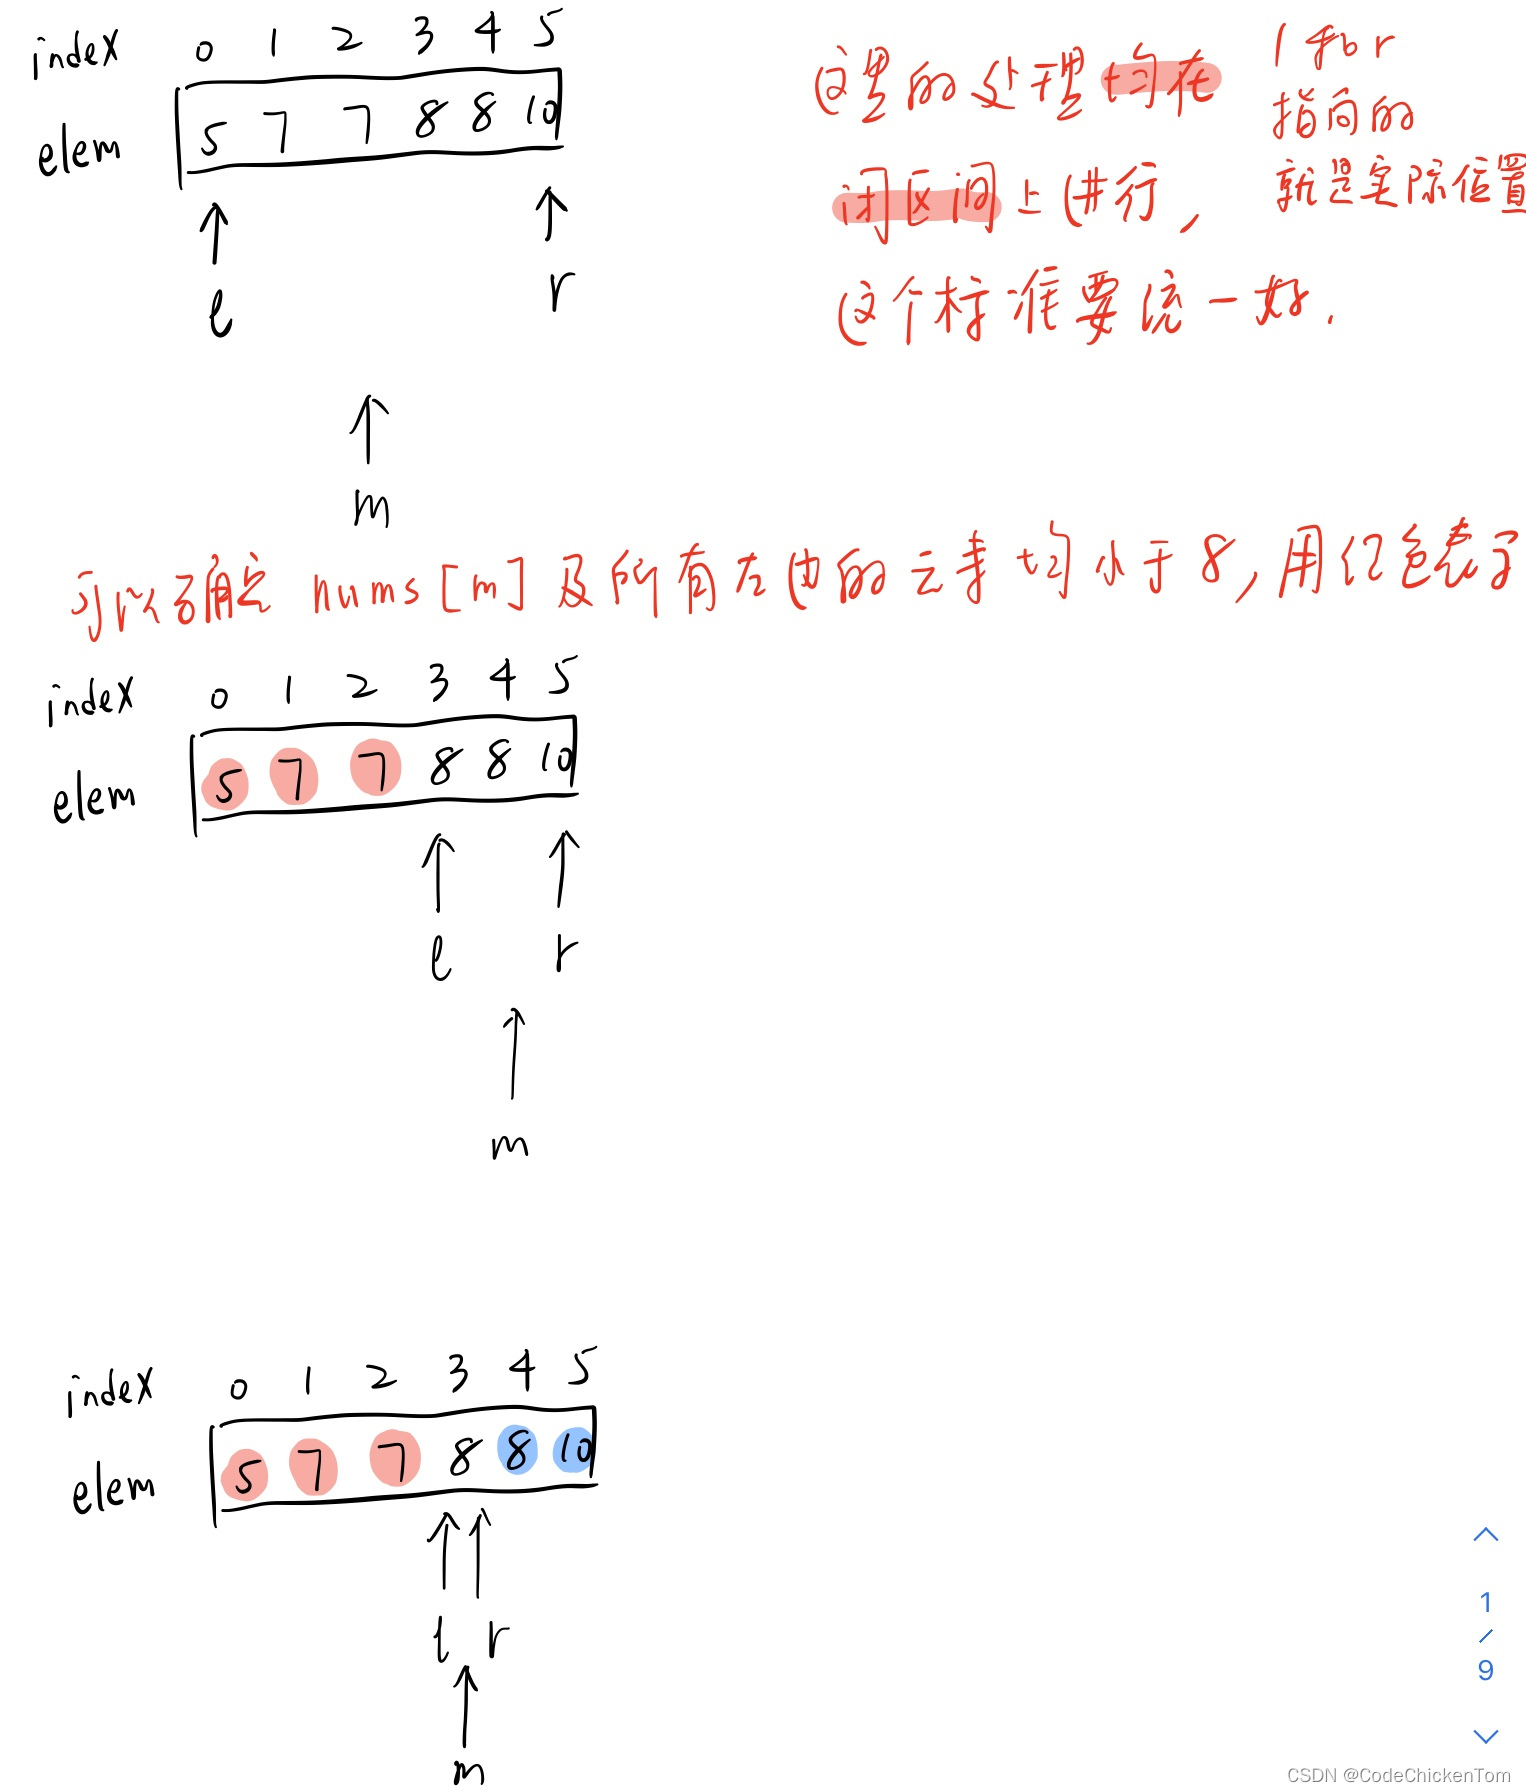 index 0 1 2 3 4 5
elem 5 7 7 8 8 10
l r
m
这里的处理均在
闭区间上进行,
这个标准要统一好.
l和r
指向的
就是实际位置
可以确定 nums[m]及所有左边的元素均小于8,用红色表示
index 0 1 2 3 4 5
elem 5 7 7 8 8 10
l r
m
index 0 1 2 3 4 5
elem 5 7 7 8 8 10
l r
m
1
/
9
CSDN @CodeChickenTom